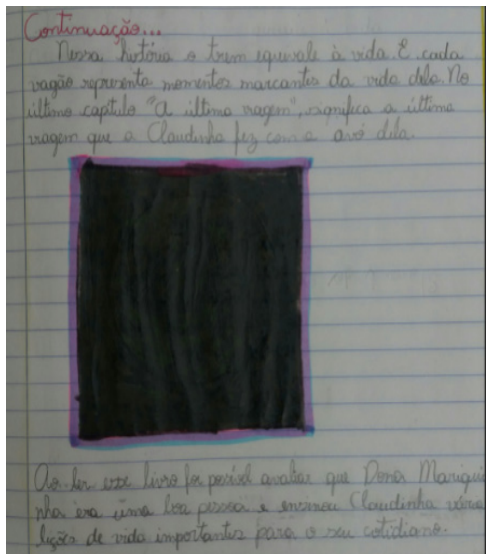 Continuação...
Nessa história o trem equivale à vida. E cada
vagão representa momentos marcantes da vida dela. No
último capítulo "A última viagem", significa a última
viagem que a Claudinha fez com a avó dela.
Ao ler esse livro foi possível avaliar que Dona Mariqui
nha era uma boa pessoa e ensinou Claudinha várias
lições de vida importantes para o seu cotidiano.